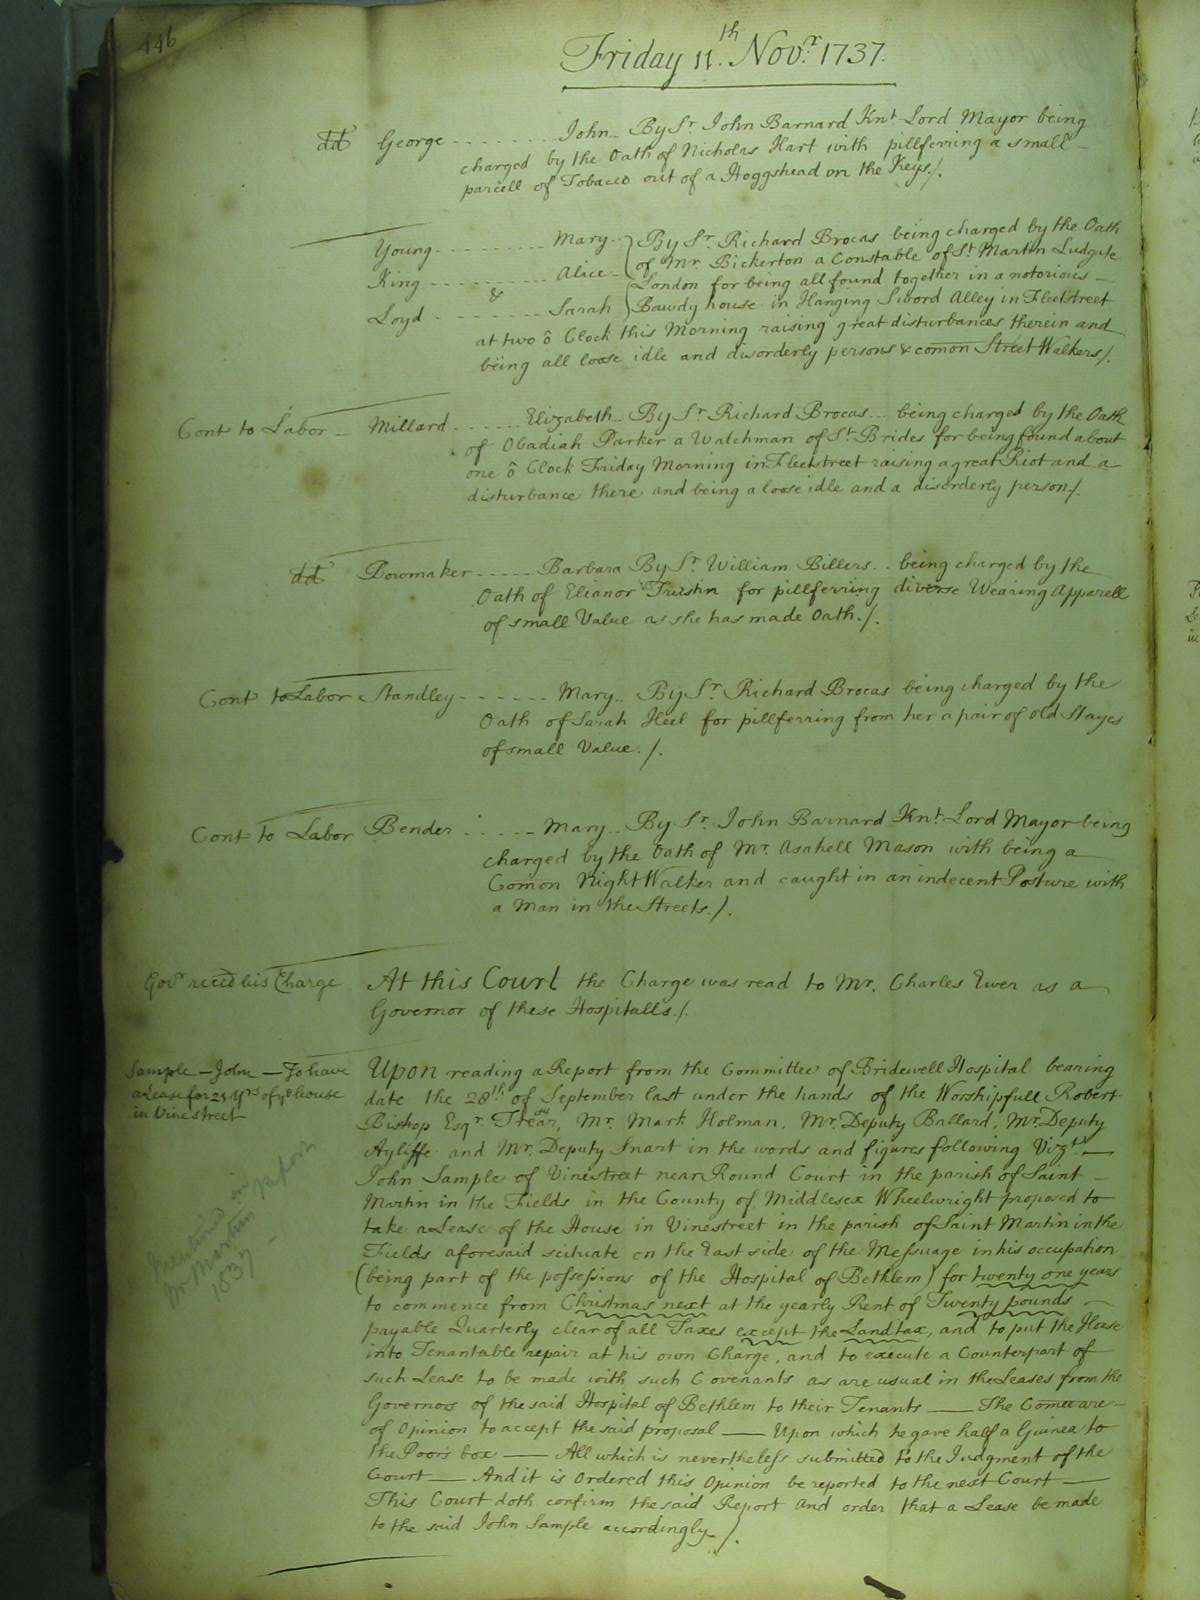 446
Friday 11th. Novr. 1737.
dd George - - - - - - - John - By Sr. John Barnard Knt. Lord Mayor being
charged by the Oath of Nicholas Hart with pillferring a small
parcell of Tobacco out of a Hoggshead on the Keys./.
Young - - - - - - - Mary - By Sr. Richard Brocas being charged by the Oath
of Mr. Bickerton a Constable of St. Martin Ludgate
King - - - - - - - Alice - London for being all found together in a notorious
&
Loyd - - - - - - - Sarah Bawdy house in Hanging Sword Alley in Fleetstreet
at two ô Clock this Morning raising great disturbances therein and
being all loose idle and disorderly persons & comon Street Walkers/.
Cont to Labor - Millard - - - - - Elizabeth - By Sr. Richard Brocas - - being charged by the Oath
of Obadiah Parker a Watchman of St. Brides for being found about
one ô Clock Friday Morning in Fleetstreet raising a great Riot and a
disturbance there and being a loose idle and a disorderly person/.
dd Bowmaker - - - - - Barbara By Sr. William Billers - - being charged by the
Oath of Elianor for pillferring diverse Wearing Apparell
of small Value as she has made Oath./.
Cont to Labor Standley - - - - - - Mary - By Sr. Richard Brocas being charged by the
Oath of Sarah Heel for pillferring from her a pair of old Stayes
of small Value./.
Cont to Labor Bender - - - - - Mary - By Sr. John Barnard Knt. Lord Mayor being
charged by the Oath of Mr. Asahell Mason with being a
Comon Night Walker and caught in an indecent Posture with
a Man in the Streets./.
Govr. reced his Charge At this Court the Charge was read to Mr. Charles Ewer as a
Governor of these Hospitalls./.
Sample - John - To have
a Lease for 21 yrs of ye house
in Vinestreet
Upon reading a Report from the Committee of Bridewell Hospital bearing
date the 28th of September last under the hands of the Worshipfull Robert
Bishop Esqr. Treasr, Mr. Mark Holman, Mr. Deputy Ballard, Mr. Deputy
Ayliffe and Mr. Deputy Snart in the words and figures following Vizt.
John Sample of Vinestreet near Round Court in the parish of Saint
Martin in the Fields in the County of Middlesex Wheelwright proposed to
take a Lease of the House in Vinestreet in the parish of Saint Martin in the
Fields aforesaid scituate on the East side of the Messuage in his occupation
(being part of the possessions of the Hospital of Bethlem) for twenty one years
to commence from Christmas next at the yearly Rent of Twenty pounds
payable Quarterly clear of all Taxes except the Land tax, and to put the House
into Tenantable repair at his own Charge, and to execute a Counterpart of
such Lease to be made with such Covenants as are usual in the Leases from the
Governors of the said Hospital of Bethlem to their Tenants — The Comee are
of Opinion to accept the said proposal — Upon which he gave half a Guinea to
the Poors box — All which is nevertheless submitted to the Judgment of the
Court — And it is Ordered this Opinion be reported to the next Court —
This Court doth confirm the said Report and order that a Lease be made
to the said John Sample accordingly./.
Mentioned in
Mr Martins Report
1837